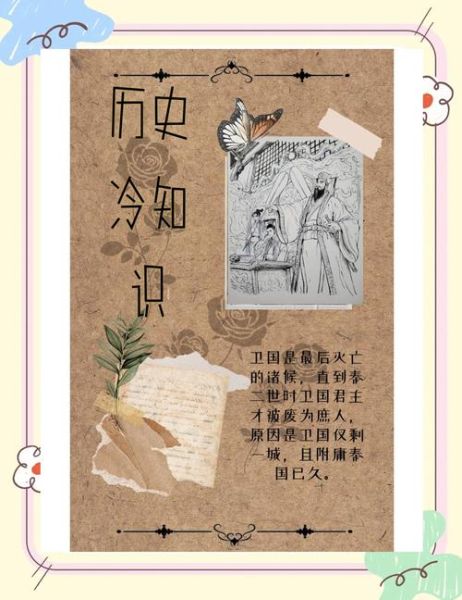 历史
冷知
识
卫国是最后灭亡
的诸候，直到秦
二世时卫国君主
才被废为庶人，
原因是卫国仅剩
一城，且附庸秦
国已久。